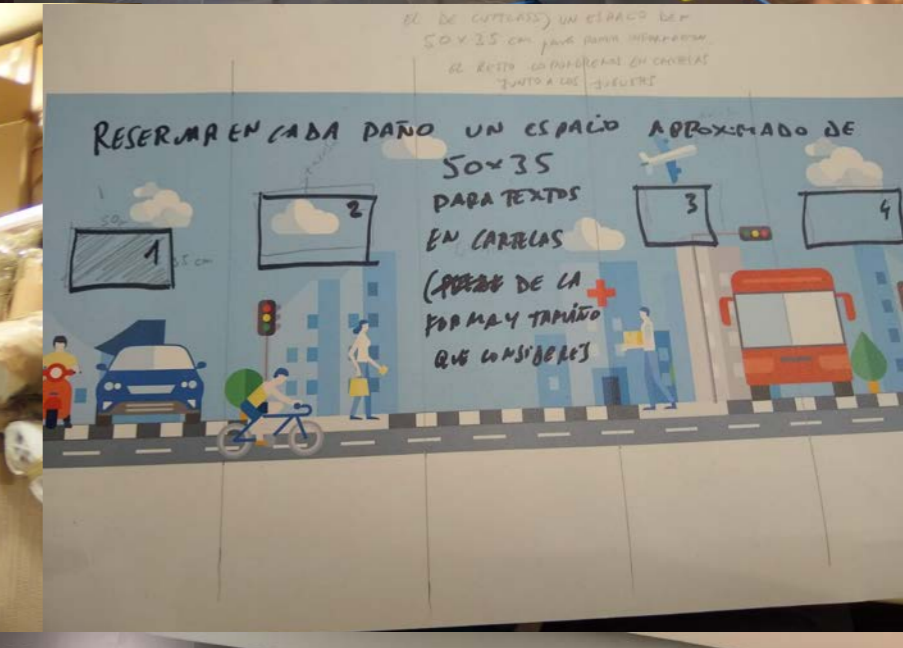 EL DE CUTTLASS) UN ESPACIO DE
50 x 35 cm para poner informacion
EL RESTO LO PONDREMOS EN CARTELAS
JUNTO A LOS JUGUETES
RESERVAR EN CADA PAÑO UN ESPACIO APROXIMADO DE
50x35
PARA TEXTOS
EN CARTELAS
( DE LA
FORMA Y TAMAÑO
QUE CONSIDERES
50
35 cm
1
2
3
4